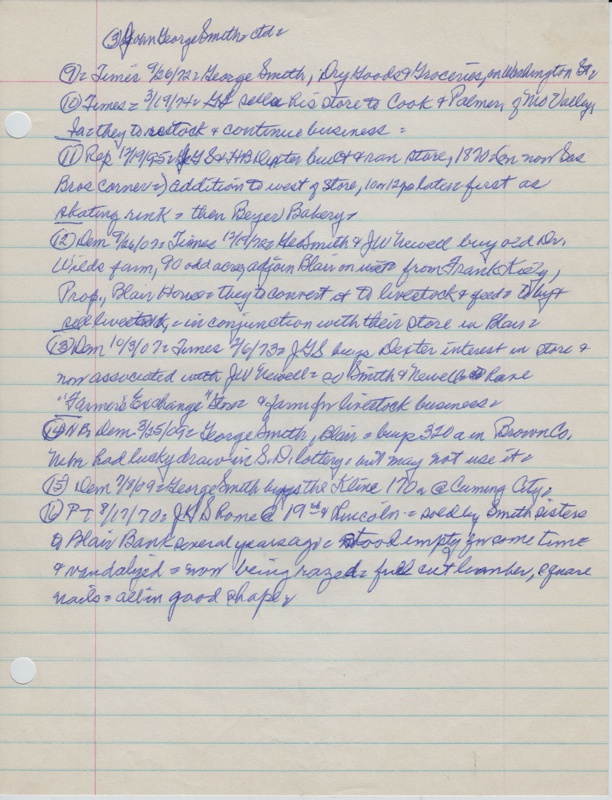 (3) John George Smith = ctd =
(9) = Times 9/26/72 = George Smith, Dry Goods & Groceries, on Washington St =
(10) Times = 3/19/74 = GS sells his store to Cook & Palmer, of Mo Valley,
Ia = they to restock & continue business =
(11) Rep 12/9/25 = JGS & HB Dexter built & ran store, 1870 = (on now Sas
Bros corner =) addition to west of store, 10 or 12 yo later = first as
skating rink = then Beyer Bakery =
(12) Dem 9/26/07 = Times 12/19/72 = Geo Smith & JW Newell buy old Dr.
Wilds farm, 90 odd acres, adjoin Blair on west = from Frank Kiely,
Prop, Blair House = they to convert it to livestock & feed = to buy &
sell livestock, = in conjunction with their store in Blair =
(13) Dem 10/3/07 = Times 2/6/73 = JGS buys Dexter interest in store &
now associated with JW Newell = so Smith & Newell have
"Farmer's Exchange" Store & farm for livestock business =
(14) NB, Dem 3/25/09 = George Smith, Blair = buys 320 a in Brown Co.
had lucky draw in S.D. lottery = but may not use it =
(15) Dem 7/8/09 = George Smith buys the Kline 170 a @ Cuming City =
(16) PT 8/17/70 = JGS home @ 19th & Lincoln = sold by Smith sisters
to Blair Bank several years ago = stood empty for some time
& vandalized = now being razed = full cut lumber, square
nails = all in good shape =